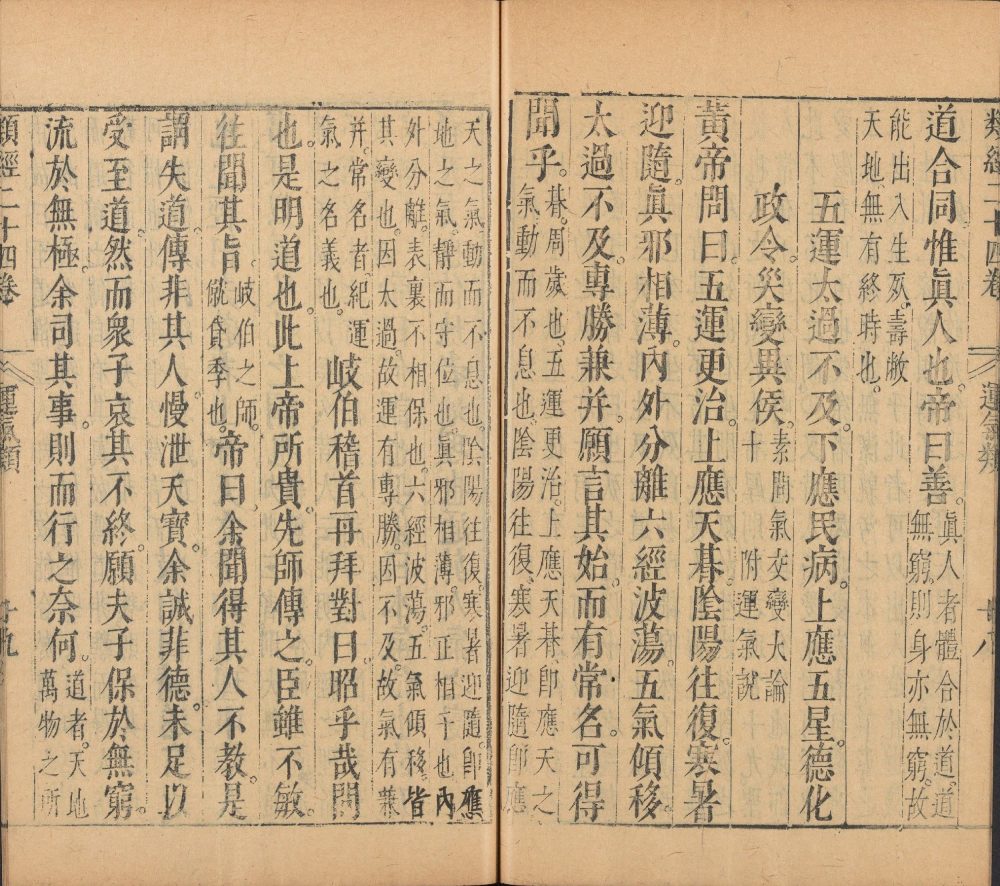 類經二十四卷
運氣類
十八
道合同惟真人也帝曰善真人者體合於道道
無窮則身亦無窮故
能出入生死壽敝
天地無有終時也
五運太過不及下應民病上應五星德化
政令災變異侯素問氣交變大論
附運氣說
黃帝問曰五運更治上應天朞陰陽往復寒暑
迎隨眞邪相薄內外分離六經波蕩五氣傾移
太過不及專勝兼并願言其始而有常名可得
聞乎朞周歲也五運更治上應天朞即應天之
氣動而不息也陰陽往復寒暑迎隨即應
天之氣動而不息也陰陽往復寒暑迎隨即應
地之氣靜而守位也眞邪相薄邪正相干也內
外分離表裏不相保也六經波蕩五氣傾移皆
其變也因太過故運有專勝因不及故氣有兼
并常名者紀運
氣之名義也岐伯稽首再拜對曰昭乎哉問
也是明道也此上帝所貴先師傳之臣雖不敏
往聞其旨岐伯之師
僦貸季也帝曰余聞得其人不教是
謂失道傳非其人慢泄天寶余誠非德未足以
受至道然而衆子哀其不終願夫子保於無窮
流於無極余司其事則而行之奈何道者天地
萬物之所
類經二十四卷
運氣類
十九